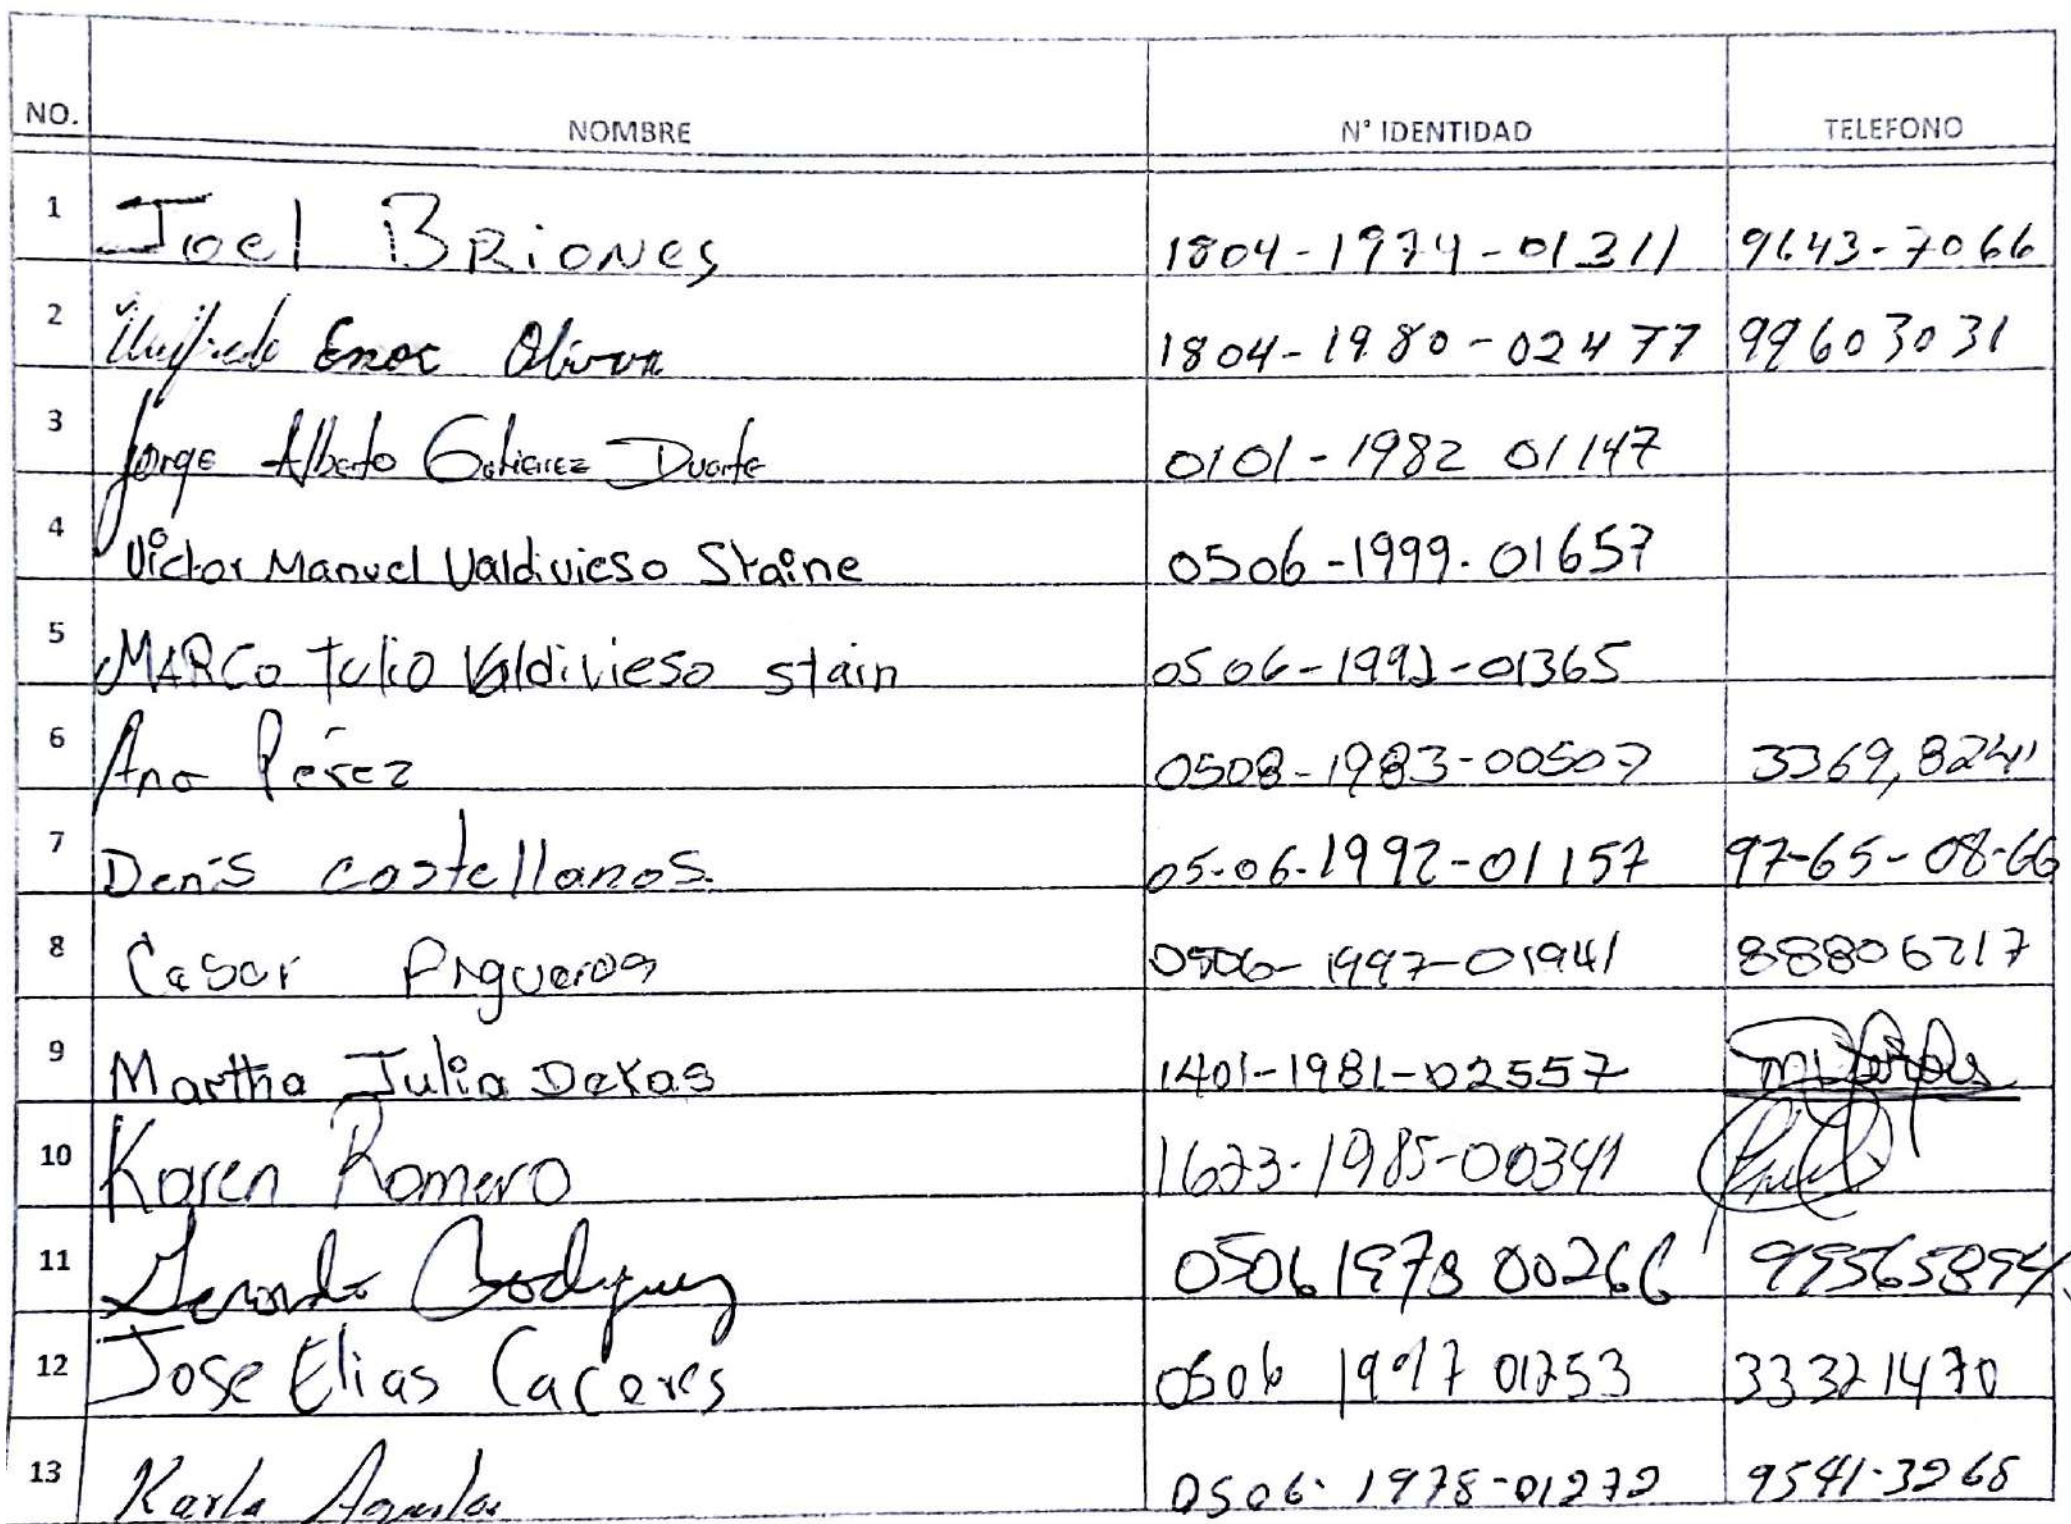 NO. NOMBRE N° IDENTIDAD TELEFONO
1 Joel BRiONes 1804-1974-01311 9643-7066
2 Enoc 1804-1980-02477 99603031
3 Jorge Alberto Gutierrez Duarte 0101-1982 01147
4 Victor Manuel Valdivieso Staine 0506-1999-01657
5 MARCo Tulio Valdivieso stain 0506-1992-01365
6 Ana Pérez 0508-1983-00507 3369,8241
7 Denis castellanos. 05-06-1992-01157 97-65-08-66
8 Cesar 0506-1997-01941 88806217
9 Martha Julia 1401-1981-02557
10 Karen Romero 1623-1985-00341
11 Gerardo Rodriguez 0506 1978 00266 99565894
12 Jose Elias Caceres 0506 1997 01253 33321470
13 Karla Aguilar 0506-1978-01272 9541-3268